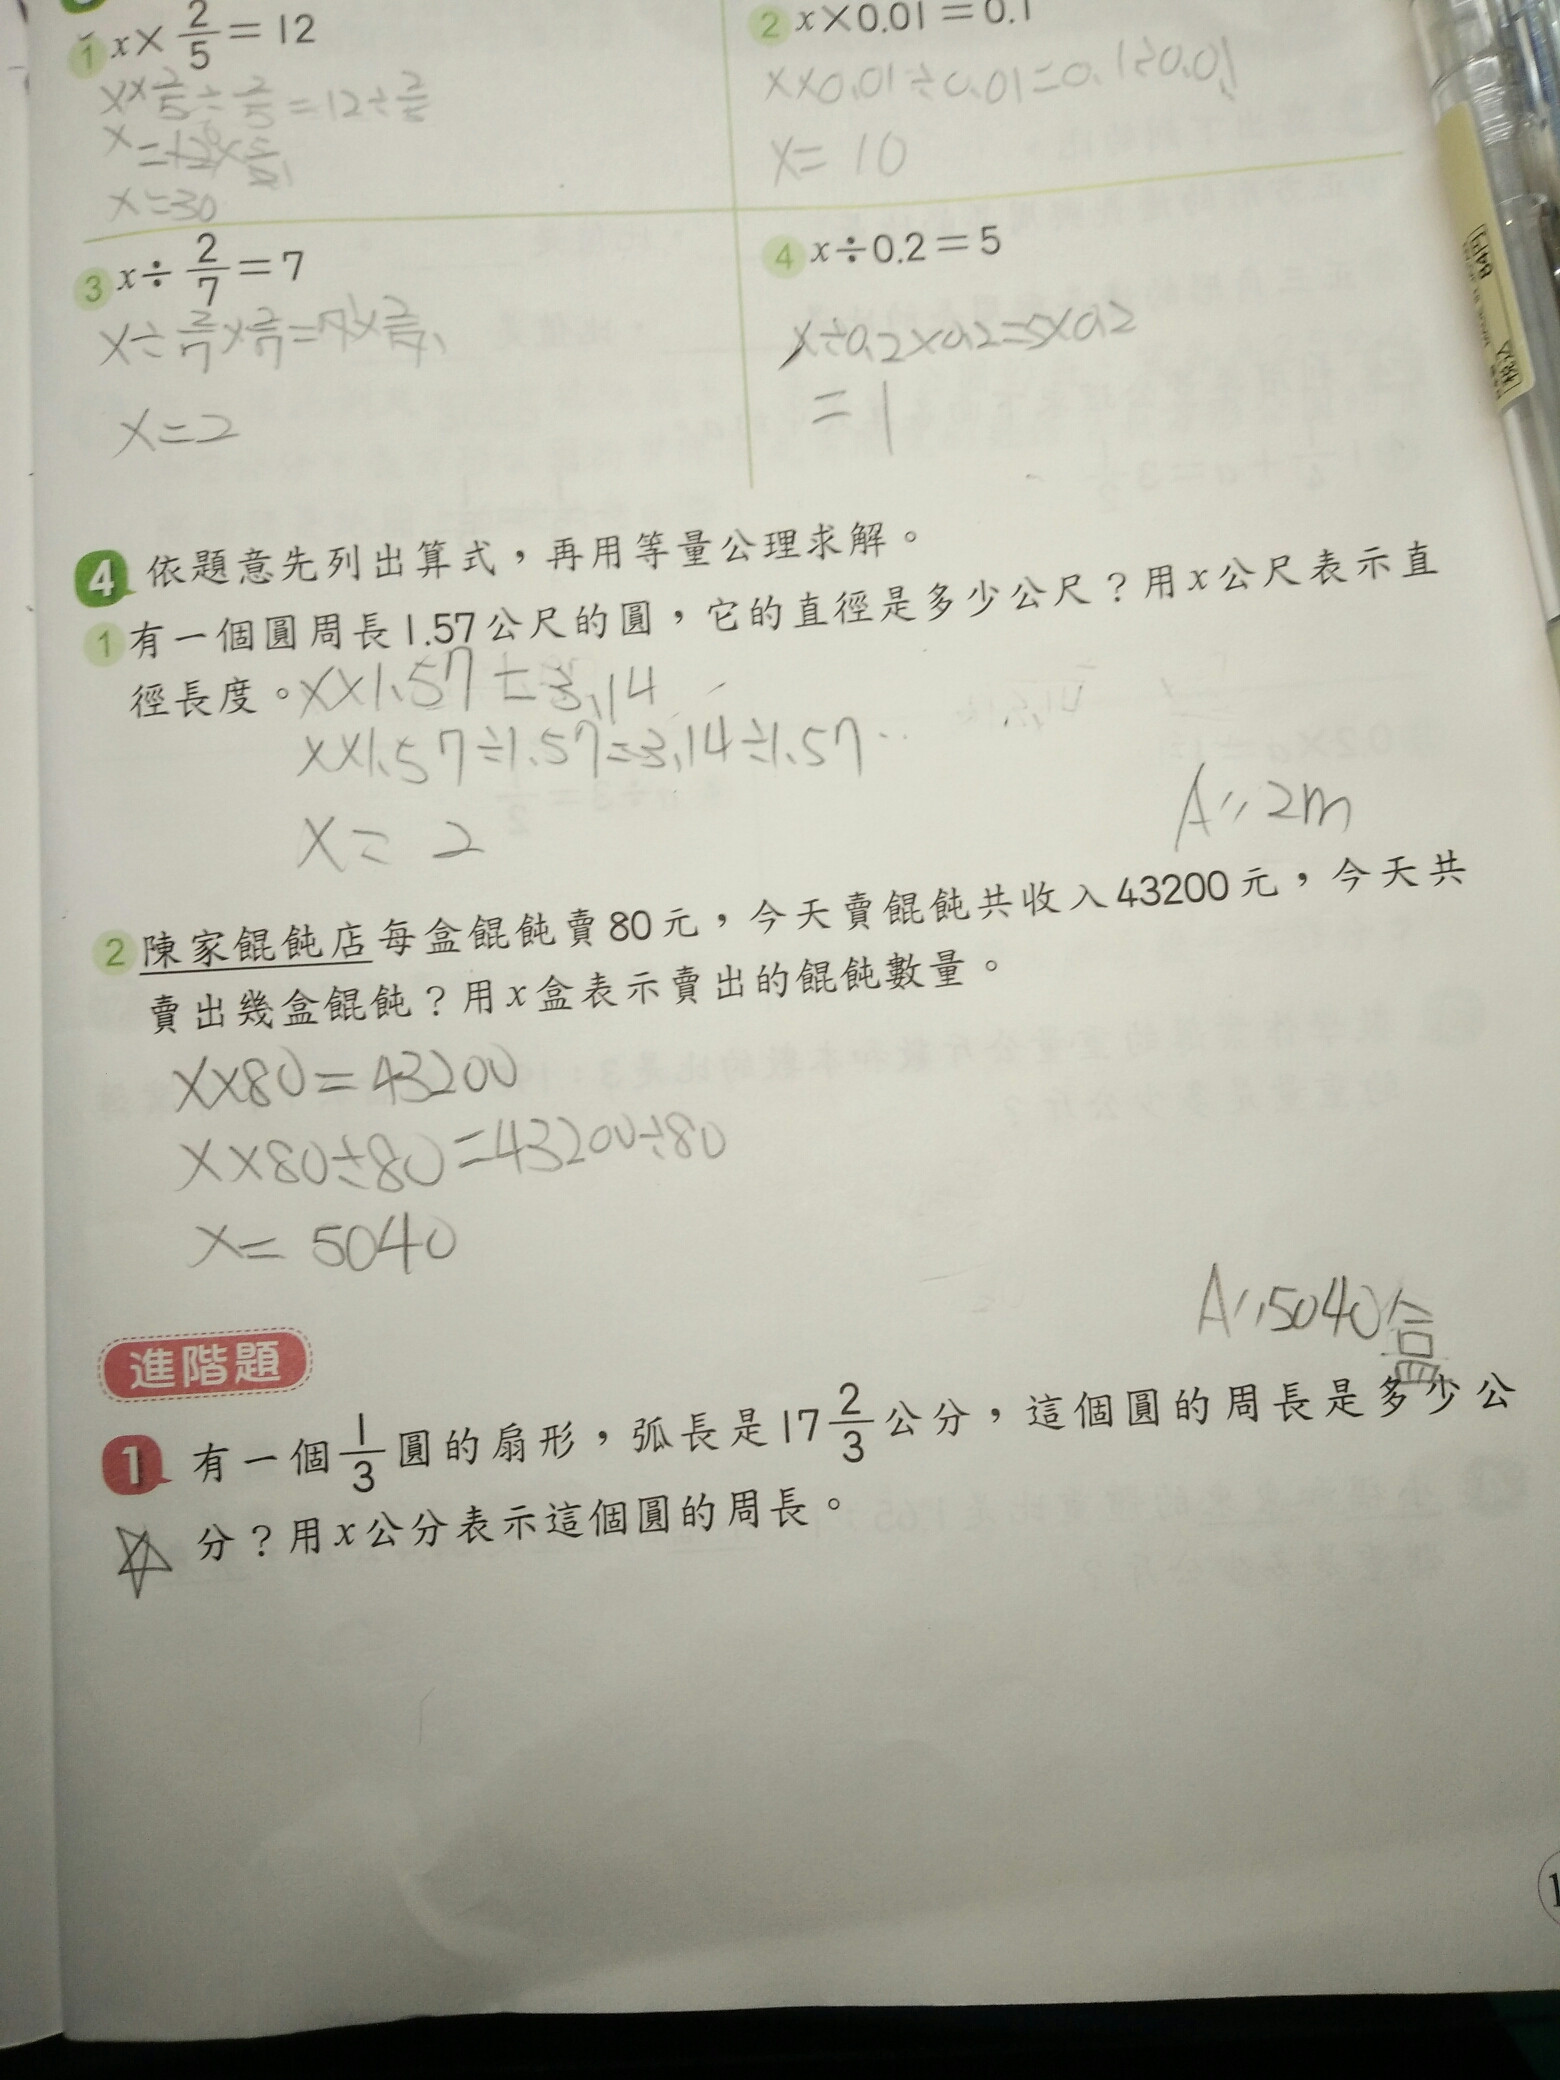 1 x × 2/5 = 12
x × 2/5 ÷ 2/5 = 12 ÷ 2/5
x = 12 × 5/2
x = 30
2 x × 0.01 = 0.1
x × 0.01 ÷ 0.01 = 0.1 ÷ 0.01
x = 10
3 x ÷ 2/7 = 7
x ÷ 2/7 × 2/7 = 7 × 2/7
x = 2
4 x ÷ 0.2 = 5
x ÷ 0.2 × 0.2 = 5 × 0.2
= 1
4 依題意先列出算式，再用等量公理求解。
1 有一個圓周長1.57公尺的圓，它的直徑是多少公尺？用x公尺表示直
徑長度。 x × 1.57 = 3.14
x × 1.57 ÷ 1.57 = 3.14 ÷ 1.57
x = 2
A: 2m
2 陳家餛飩店每盒餛飩賣80元，今天賣餛飩共收入43200元，今天共
賣出幾盒餛飩？用x盒表示賣出的餛飩數量。
x × 80 = 43200
x × 80 ÷ 80 = 43200 ÷ 80
x = 5040
A: 5040盒
進階題
1 有一個1/3圓的扇形，弧長是17 2/3公分，這個圓的周長是多少公
分？用x公分表示這個圓的周長。